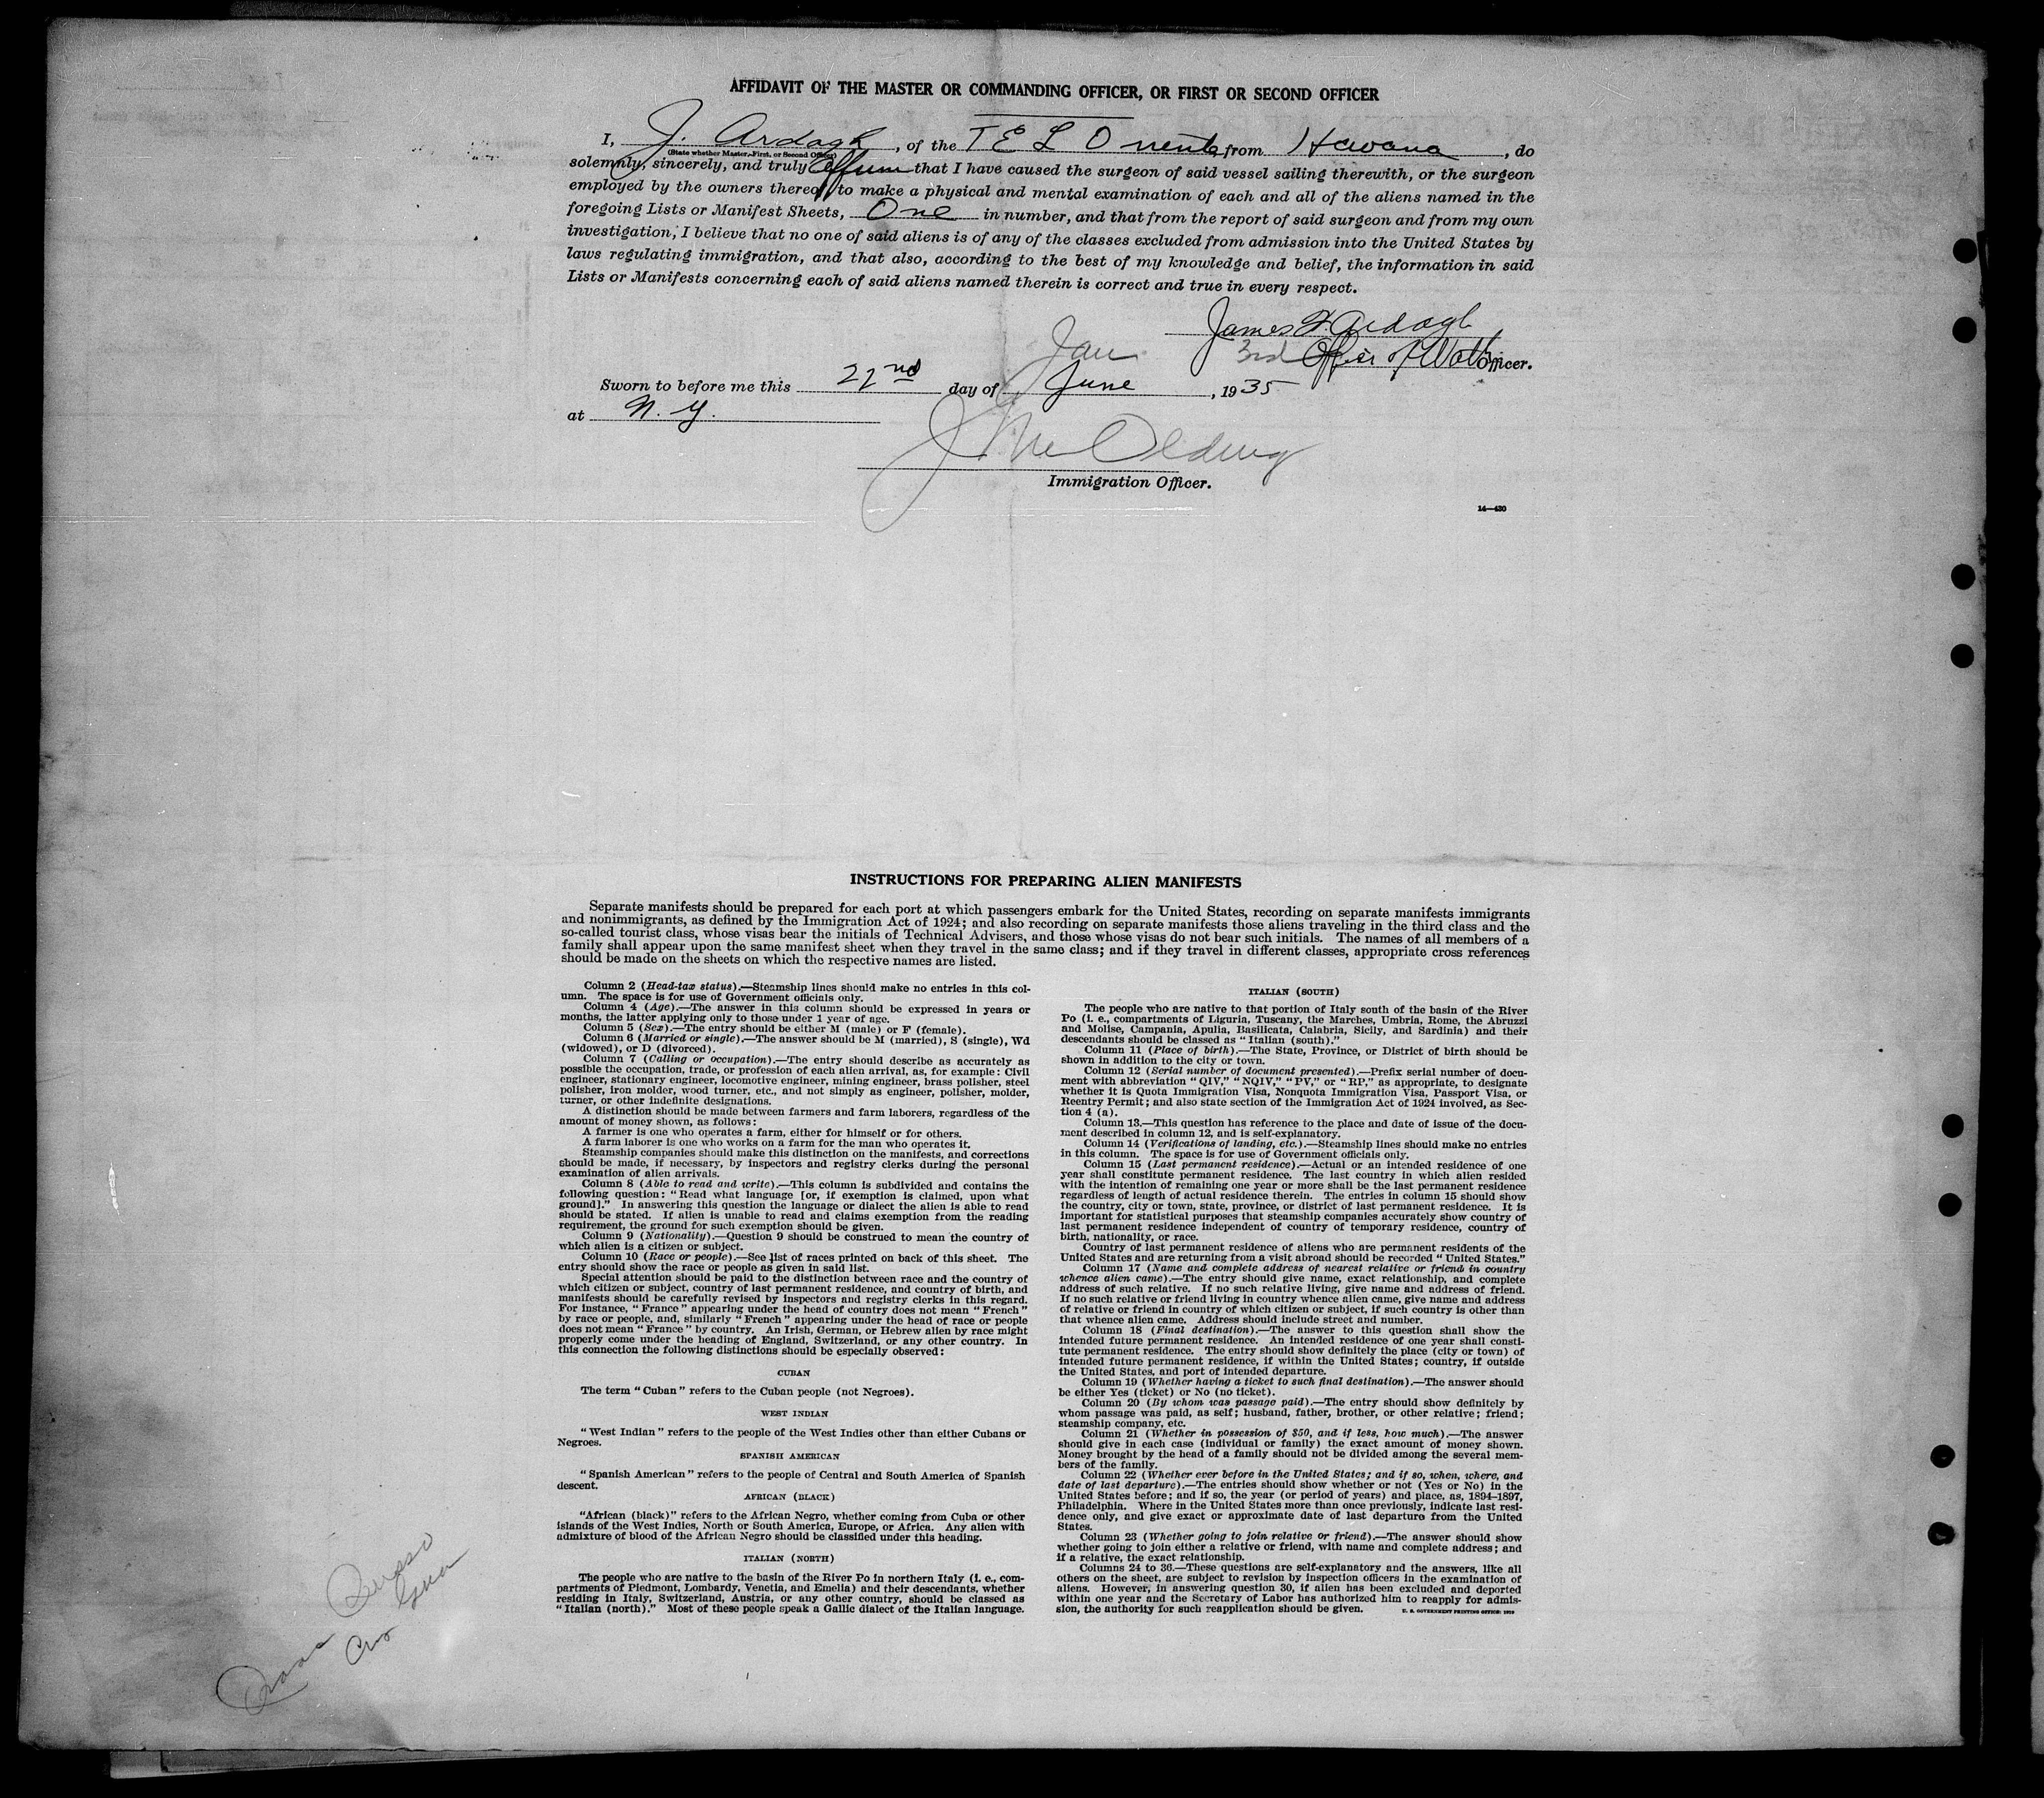 AFFIDAVIT OF THE MASTER OR COMMANDING OFFICER, OR FIRST OR SECOND OFFICER
I, J. Ardagh, of the T E L Oriente from Havana, do
(State whether Master, First, or Second Officer)
solemnly, sincerely, and truly affirm that I have caused the surgeon of said vessel sailing therewith, or the surgeon
employed by the owners thereof, to make a physical and mental examination of each and all of the aliens named in the
foregoing Lists or Manifest Sheets, One in number, and that from the report of said surgeon and from my own
investigation, I believe that no one of said aliens is of any of the classes excluded from admission into the United States by
laws regulating immigration, and that also, according to the best of my knowledge and belief, the information in said
Lists or Manifests concerning each of said aliens named therein is correct and true in every respect.
James F. Ardagh
3rd Officer of Watch Officer.
Jan
Sworn to before me this 22nd day of June, 1935
at N. Y.
Immigration Officer.
14—430
INSTRUCTIONS FOR PREPARING ALIEN MANIFESTS
Separate manifests should be prepared for each port at which passengers embark for the United States, recording on separate manifests immigrants
and nonimmigrants, as defined by the Immigration Act of 1924; and also recording on separate manifests those aliens traveling in the third class and the
so-called tourist class, whose visas bear the initials of Technical Advisers, and those whose visas do not bear such initials. The names of all members of a
family shall appear upon the same manifest sheet when they travel in the same class; and if they travel in different classes, appropriate cross references
should be made on the sheets on which the respective names are listed.
Column 2 (Head-tax status).—Steamship lines should make no entries in this col-
umn. The space is for use of Government officials only.
Column 4 (Age).—The answer in this column should be expressed in years or
months, the latter applying only to those under 1 year of age.
Column 5 (Sex).—The entry should be either M (male) or F (female).
Column 6 (Married or single).—The answer should be M (married), S (single), Wd
(widowed), or D (divorced).
Column 7 (Calling or occupation).—The entry should describe as accurately as
possible the occupation, trade, or profession of each alien arrival, as, for example: Civil
engineer, stationary engineer, locomotive engineer, mining engineer, brass polisher, steel
polisher, iron molder, wood turner, etc., and not simply as engineer, polisher, molder,
turner, or other indefinite designations.
A distinction should be made between farmers and farm laborers, regardless of the
amount of money shown, as follows:
A farmer is one who operates a farm, either for himself or for others.
A farm laborer is one who works on a farm for the man who operates it.
Steamship companies should make this distinction on the manifests, and corrections
should be made, if necessary, by inspectors and registry clerks during the personal
examination of alien arrivals.
Column 8 (Able to read and write).—This column is subdivided and contains the
following question: "Read what language [or, if exemption is claimed, upon what
ground]." In answering this question the language or dialect the alien is able to read
should be stated. If alien is unable to read and claims exemption from the reading
requirement, the ground for such exemption should be given.
Column 9 (Nationality).—Question 9 should be construed to mean the country of
which alien is a citizen or subject.
Column 10 (Race or people).—See list of races printed on back of this sheet. The
entry should show the race or people as given in said list.
Special attention should be paid to the distinction between race and the country of
which citizen or subject, country of last permanent residence, and country of birth, and
manifests should be carefully revised by inspectors and registry clerks in this regard.
For instance, "France" appearing under the head of country does not mean "French"
by race or people, and, similarly "French" appearing under the head of race or people
does not mean "France" by country. An Irish, German, or Hebrew alien by race might
properly come under the heading of England, Switzerland, or any other country. In
this connection the following distinctions should be especially observed:
CUBAN
The term "Cuban" refers to the Cuban people (not Negroes).
WEST INDIAN
"West Indian" refers to the people of the West Indies other than either Cubans or
Negroes.
SPANISH AMERICAN
"Spanish American" refers to the people of Central and South America of Spanish
descent.
AFRICAN (BLACK)
"African (black)" refers to the African Negro, whether coming from Cuba or other
islands of the West Indies, North or South America, Europe, or Africa. Any alien with
admixture of blood of the African Negro should be classified under this heading.
ITALIAN (NORTH)
The people who are native to the basin of the River Po in northern Italy (i. e., com-
partments of Piedmont, Lombardy, Venetia, and Emelia) and their descendants, whether
residing in Italy, Switzerland, Austria, or any other country, should be classed as
"Italian (north)." Most of these people speak a Gallic dialect of the Italian language.
ITALIAN (SOUTH)
The people who are native to that portion of Italy south of the basin of the River
Po (i. e., compartments of Liguria, Tuscany, the Marches, Umbria, Rome, the Abruzzi
and Molise, Campania, Apulia, Basilicata, Calabria, Sicily, and Sardinia) and their
descendants should be classed as "Italian (south)."
Column 11 (Place of birth).—The State, Province, or District of birth should be
shown in addition to the city or town.
Column 12 (Serial number of document presented).—Prefix serial number of docu-
ment with abbreviation "QIV," "NQIV," "PV," or "RP," as appropriate, to designate
whether it is Quota Immigration Visa, Nonquota Immigration Visa, Passport Visa, or
Reentry Permit; and also state section of the Immigration Act of 1924 involved, as Sec-
tion 4 (a).
Column 13.—This question has reference to the place and date of issue of the docu-
ment described in column 12, and is self-explanatory.
Column 14 (Verifications of landing, etc.).—Steamship lines should make no entries
in this column. The space is for use of Government officials only.
Column 15 (Last permanent residence).—Actual or an intended residence of one
year shall constitute permanent residence. The last country in which alien resided
with the intention of remaining one year or more shall be the last permanent residence
regardless of length of actual residence therein. The entries in column 15 should show
the country, city or town, state, province, or district of last permanent residence. It is
important for statistical purposes that steamship companies accurately show country of
last permanent residence independent of country of temporary residence, country of
birth, nationality, or race.
Country of last permanent residence of aliens who are permanent residents of the
United States and are returning from a visit abroad should be recorded "United States."
Column 17 (Name and complete address of nearest relative or friend in country
whence alien came).—The entry should give name, exact relationship, and complete
address of such relative. If no such relative living, give name and address of friend.
If no such relative or friend living in country whence alien came, give name and address
of relative or friend in country of which citizen or subject, if such country is other than
that whence alien came. Address should include street and number.
Column 18 (Final destination).—The answer to this question shall show the
intended future permanent residence. An intended residence of one year shall consti-
tute permanent residence. The entry should show definitely the place (city or town) of
intended future permanent residence, if within the United States; country, if outside
the United States, and port of intended departure.
Column 19 (Whether having a ticket to such final destination).—The answer should
be either Yes (ticket) or No (no ticket).
Column 20 (By whom was passage paid).—The entry should show definitely by
whom passage was paid, as self; husband, father, brother, or other relative; friend;
steamship company, etc.
Column 21 (Whether in possession of $50, and if less, how much).—The answer
should give in each case (individual or family) the exact amount of money shown.
Money brought by the head of a family should not be divided among the several mem-
bers of the family.
Column 22 (Whether ever before in the United States; and if so, when, where, and
date of last departure).—The entries should show whether or not (Yes or No) in the
United States before; and if so, the year (or period of years) and place, as, 1894–1897,
Philadelphia. Where in the United States more than once previously, indicate last resi-
dence only, and give exact or approximate date of last departure from the United
States.
Column 23 (Whether going to join relative or friend).—The answer should show
whether going to join either a relative or friend, with name and complete address; and
if a relative, the exact relationship.
Columns 24 to 36.—These questions are self-explanatory and the answers, like all
others on the sheet, are subject to revision by inspection officers in the examination of
aliens. However, in answering question 30, if alien has been excluded and deported
within one year and the Secretary of Labor has authorized him to reapply for admis-
sion, the authority for such reapplication should be given.